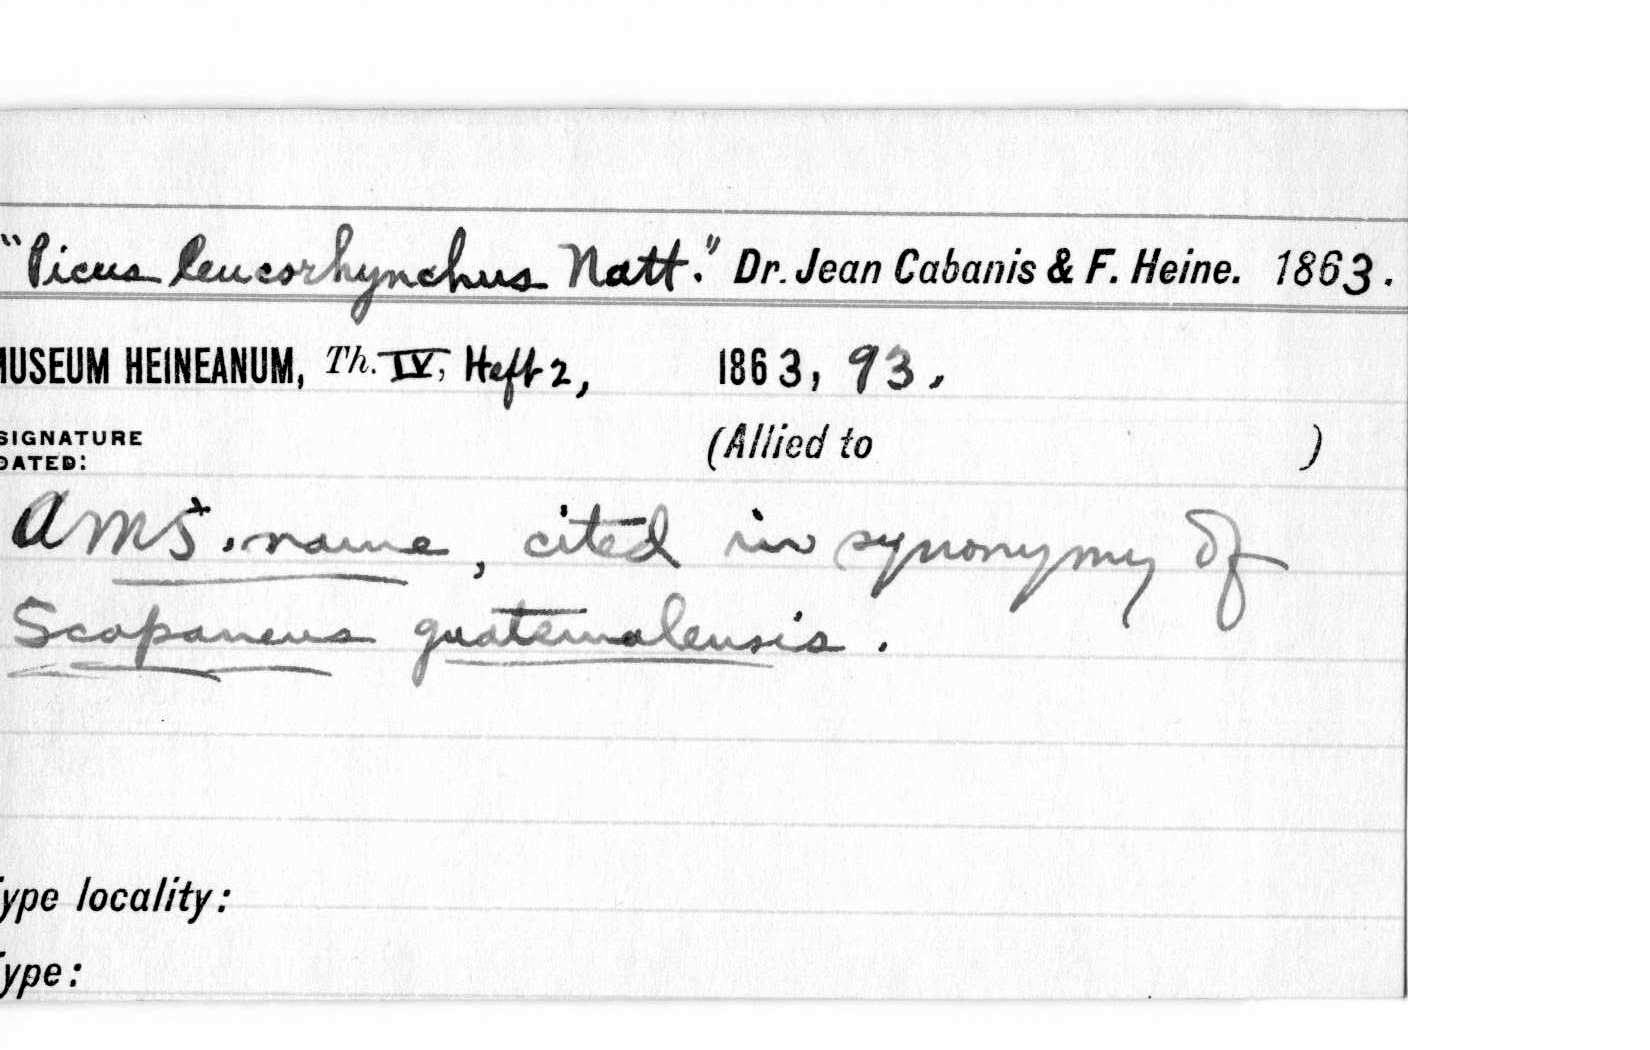 "Picus leucorhynchus Natt." Dr. Jean Cabanis & F. Heine. 1863.
MUSEUM HEINEANUM, Th. IV, Heft 2, 1863, 93.
SIGNATURE (Allied to )
DATED:
A MS. name, cited in synonymy of
Scapaneus guatemalensis.
Type locality:
Type: